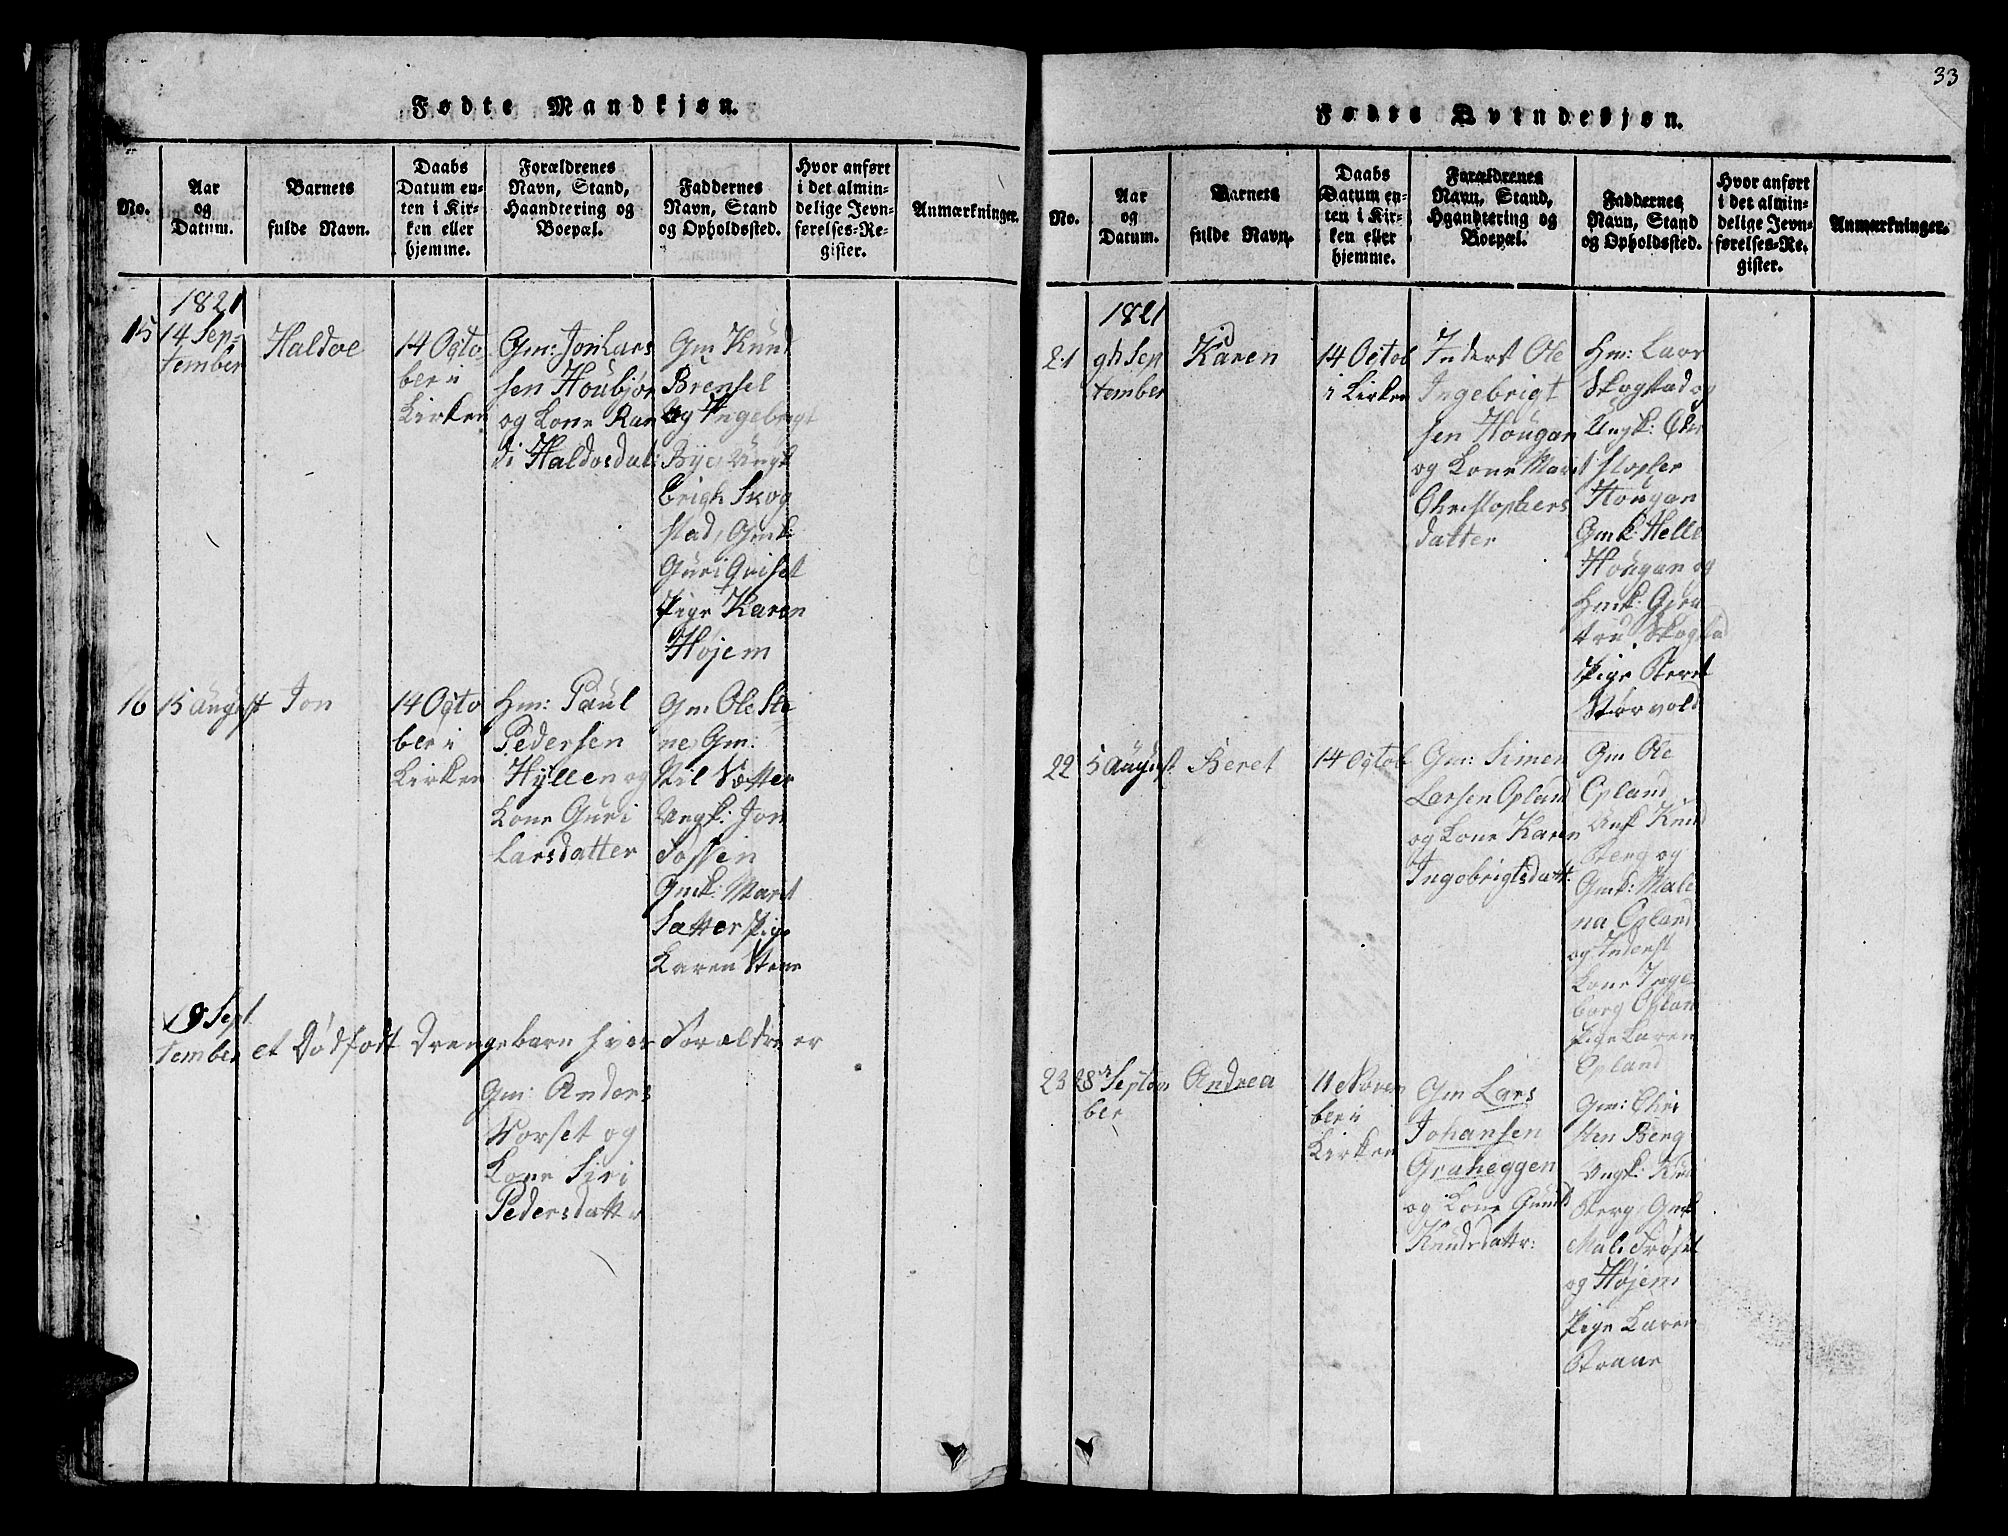 33
Fødte Mandkjøn.
No.
Aar
og
Datum.
Barnets
fulde Navn.
Daabs
Datum en-
ten i Kir-
ken eller
hjemme.
Forældrenes
Navn, Stand,
Haandtering og
Boepæl.
Faddernes
Navn, Stand
og Opholdssted.
Hvor anført
i det almin-
delige Jevn-
førelses-Re-
gister.
Anmærkninger.
1821
15
14 Sep-
tember
Haldoe
14 Octo
ber i
Kirken
Gm: Jon Lars
sen Houbjør
og Kone Ran
di Haldosdat:
Gm Knud
Brensel
og Ingebrigt
Bye, Ungk
Erich Skog
stad, Gmk:
Guri Qviset
Pige Karen
Højem
16
15 August
Jon
14 Octo
ber i
Kirken
Hm: Paul
Pedersen
Hyllen og
Kone Guri
Larsdatter
Gm Ole Ste
ne, Gm:
Nil Sætter
Ungk: Jon
Gmk: Marit
Sætter Pige
Karen Stene
9 Sept
tember et Dødfødt Drengebarn hvis Forældre er
Gm: Anders
Vorset og
Kone Siri
Pedersdatter
Fødte Qvindekjøn.
No.
Aar
og
Datum.
Barnets
fulde Navn.
Daabs
Datum en-
ten i Kir-
ken eller
hjemme.
Forældrenes
Navn, Stand,
Haandtering og
Boepæl.
Faddernes
Navn, Stand
og Opholdssted.
Hvor anført
i det almin-
delige Jevn-
førelses-Re-
gister.
Anmærkninger.
1821
21
9de Sep
tember
Karen
14 Octob
i Kirken
Inderst Ole
Ingebrigt
sen Hougan
og Kone Marit
Christophers
datter
Hm: Lars
Skogstad og
Ungk: Chr
stopfer
Hougan
Gmk: Helle
Hougan og
Hmk: Gjer
trud Skogstad
Pige Beret
Storvold
22
5 August
Beret
14 Octob
Gm: Simen
Larsen Opland
og Kone Karen
Ingebrigtsdatt:
Gm Ole
Opland
Ungk Knud
Berg og
Gmk: Male
na Opland
og Inderst
Kone Inge
borg Oplan
Pige Karen
Opland
23
28 Septem
ber
Andrea
11e Novem
ber i
Kirken
Gm Lars
Johansen
Graheggen
og Kone Gunild
Knudsdattr:
Gm: Chri
sten Berg
Ungk: Knu
Berg, Gmk
Mali Frøset
og Høiem
Pige Karen